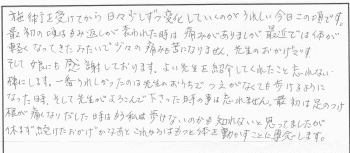 施術を受けてから日々少しずつ変化していくのがうれしい今日この頃です。
最初の頃はもみ返しが表われた時は痛みがありましたが最近では体が
軽くなってきたみたいで少々の痛みも苦になりません。先生のおかげです
そして娘にも感謝しております。よい先生を紹介してくれたこと忘れない
様にします。一番うれしかったのは先生のおうちでつえがなくても歩けるように
なった時、そして先生がよろこんで下さった時の事は忘れません。最初は足のつけ
根が痛くなりだした時はもう私は歩けないのかも知れないと思ってましたが
休まず続けたおかげかなあとこれからはもっと体を動かすことに専念します。